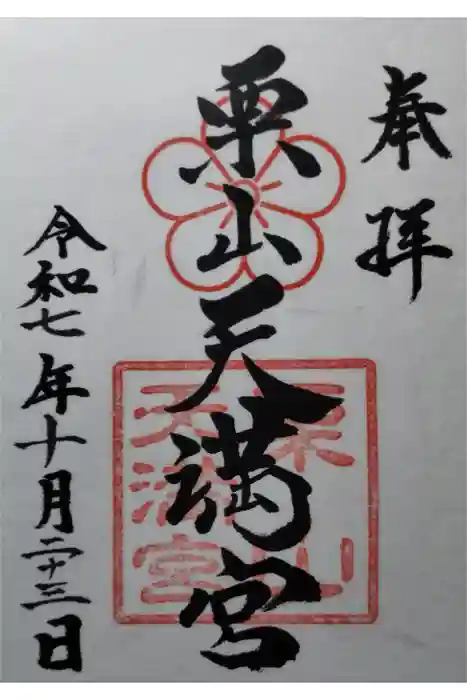 奉拝
栗山天満宮
栗山
天満宮
令和七年十月二十三日